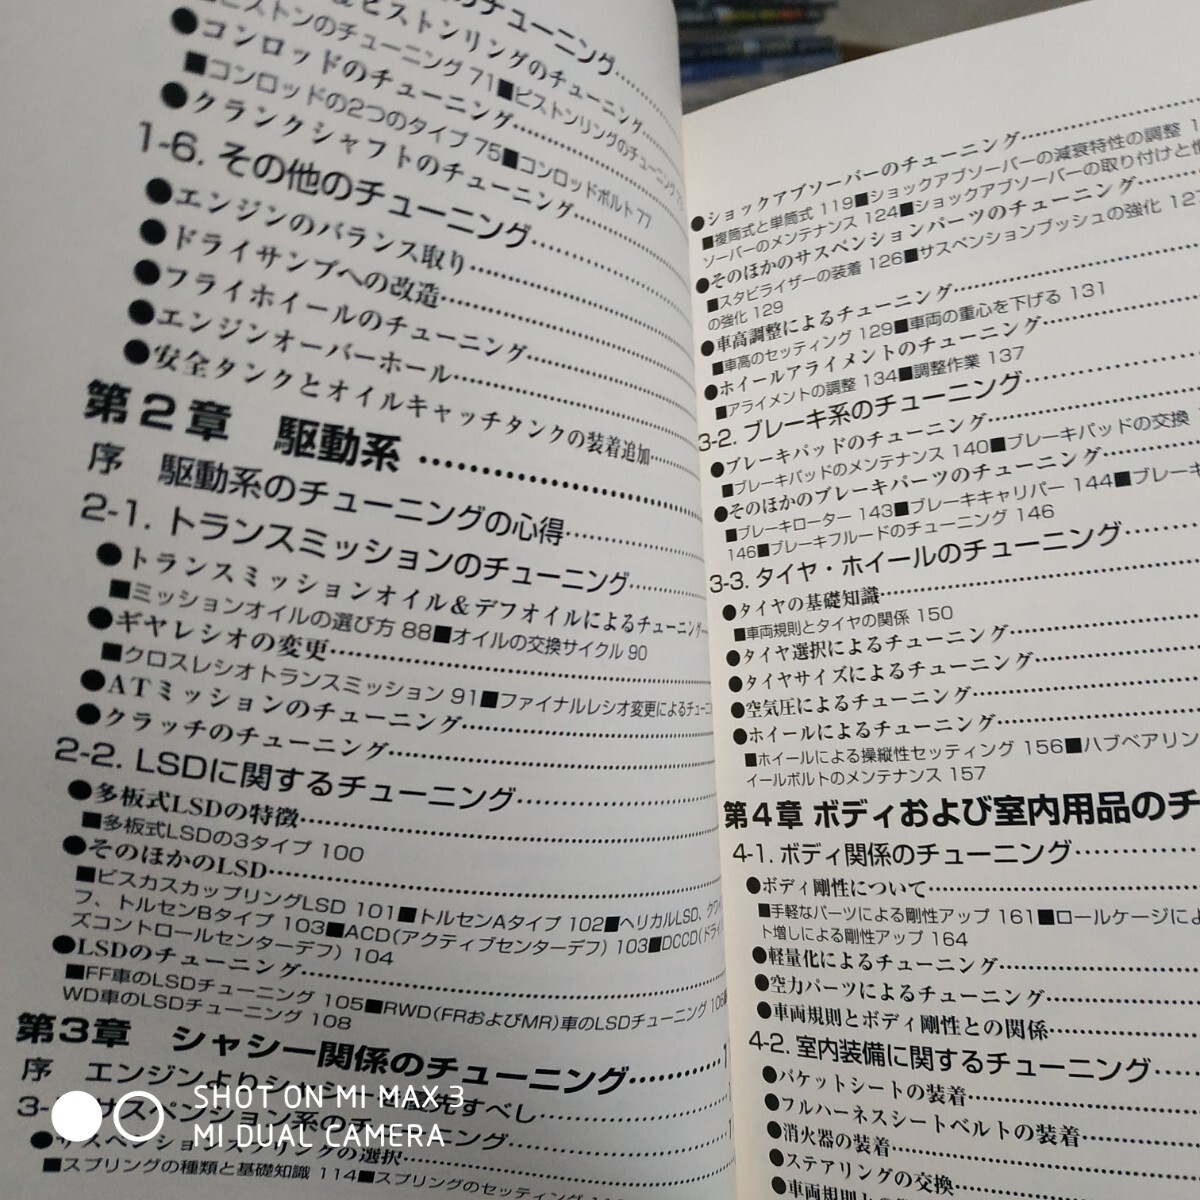 のチューニング
ピストンリングのチューニング
ピストンのチューニング 71■ピストンリングのチューニング
●コンロッドのチューニング
■コンロッドの2つのタイプ 75■コンロッドボルト 77
●クランクシャフトのチューニング
1-6. その他のチューニング
●エンジンのバランス取り
●ドライサンプへの改造
●フライホイールのチューニング
●エンジンオーバーホール
●安全タンクとオイルキャッチタンクの装着追加
第2章 駆動系
序 駆動系のチューニングの心得
2-1. トランスミッションのチューニング
●トランスミッションオイル＆デフオイルによるチューニング
■ミッションオイルの選び方 88■オイルの交換サイクル 90
●ギヤレシオの変更
■クロスレシオトランスミッション 91■ファイナルレシオ変更によるチューニ
●ATミッションのチューニング
●クラッチのチューニング
2-2. LSDに関するチューニング
●多板式LSDの特徴
■多板式LSDの3タイプ 100
●そのほかのLSD
■ビスカスカップリングLSD 101■トルセンAタイプ 102■ヘリカルLSD、クワ
フ、トルセンBタイプ 103■ACD(アクティブセンターデフ) 103■DCCD(ドライ
ズコントロールセンターデフ) 104
●LSDのチューニング
■FF車のLSDチューニング 105■RWD(FRおよびMR)車のLSDチューニング 106
WD車のLSDチューニング 108
第3章 シャシー関係のチューニング
序 エンジンよりシャシー
先すべし
サスペンション系のチューニング
の選択
■スプリングの種類と基礎知識 114■スプリングのセッティング
●ショックアブソーバーのチューニング
■複筒式と単筒式 119■ショックアブソーバーの減衰特性の調整
ソーバーのメンテナンス 124■ショックアブソーバーの取り付けと
●そのほかのサスペンションパーツのチューニング
■スタビライザーの装着 126■サスペンションブッシュの強化 127
の強化 129
●車高調整によるチューニング
■車高のセッティング 129■車両の重心を下げる 131
●ホイールアライメントのチューニング
■アライメントの調整 134■調整作業 137
3-2. ブレーキ系のチューニング
●ブレーキパッドのチューニング
■ブレーキパッドのメンテナンス 140■ブレーキパッドの交換
●そのほかのブレーキパーツのチューニング
■ブレーキローター 143■ブレーキキャリパー 144■ブレーキ
146■ブレーキフルードのチューニング 146
3-3. タイヤ・ホイールのチューニング
●タイヤの基礎知識
■車両規則とタイヤの関係 150
●タイヤ選択によるチューニング
●タイヤサイズによるチューニング
●空気圧によるチューニング
●ホイールによるチューニング
■ホイールによる操縦性セッティング 156■ハブベアリン
イールボルトのメンテナンス 157
第4章 ボディおよび室内用品のチ
4-1. ボディ関係のチューニング
●ボディ剛性について
■手軽なパーツによる剛性アップ 161■ロールケージによ
ト増しによる剛性アップ 164
●軽量化によるチューニング
●空力パーツによるチューニング
●車両規則とボディ剛性との関係
4-2. 室内装備に関するチューニング
●バケットシートの装着
●フルハーネスシートベルトの装着
●消火器の装着
●ステアリングの交換
●車両規則と
SHOT ON MI MAX 3
MI DUAL CAMERA